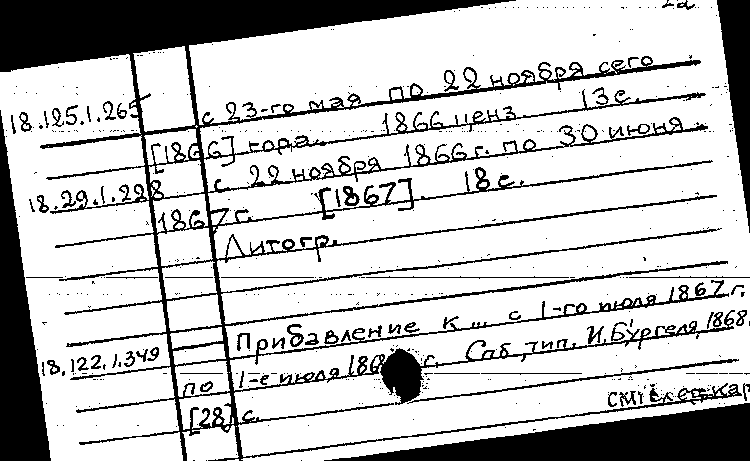 2а
18.125.1.265 с 23-го мая по 22 ноября сего
[1866] года. 1866 ценз. 13 с.
18.29.1.228 с 22 ноября 1866 г. по 30 июня
1867 г. [1867]. 18 с.
Литогр.
18.122.1.349 — Прибавление к ... с 1-го июля 1867 г.
по 1-е июля 186 г. Спб., тип. И. Бургеля, 1868.
[28] с.
см.